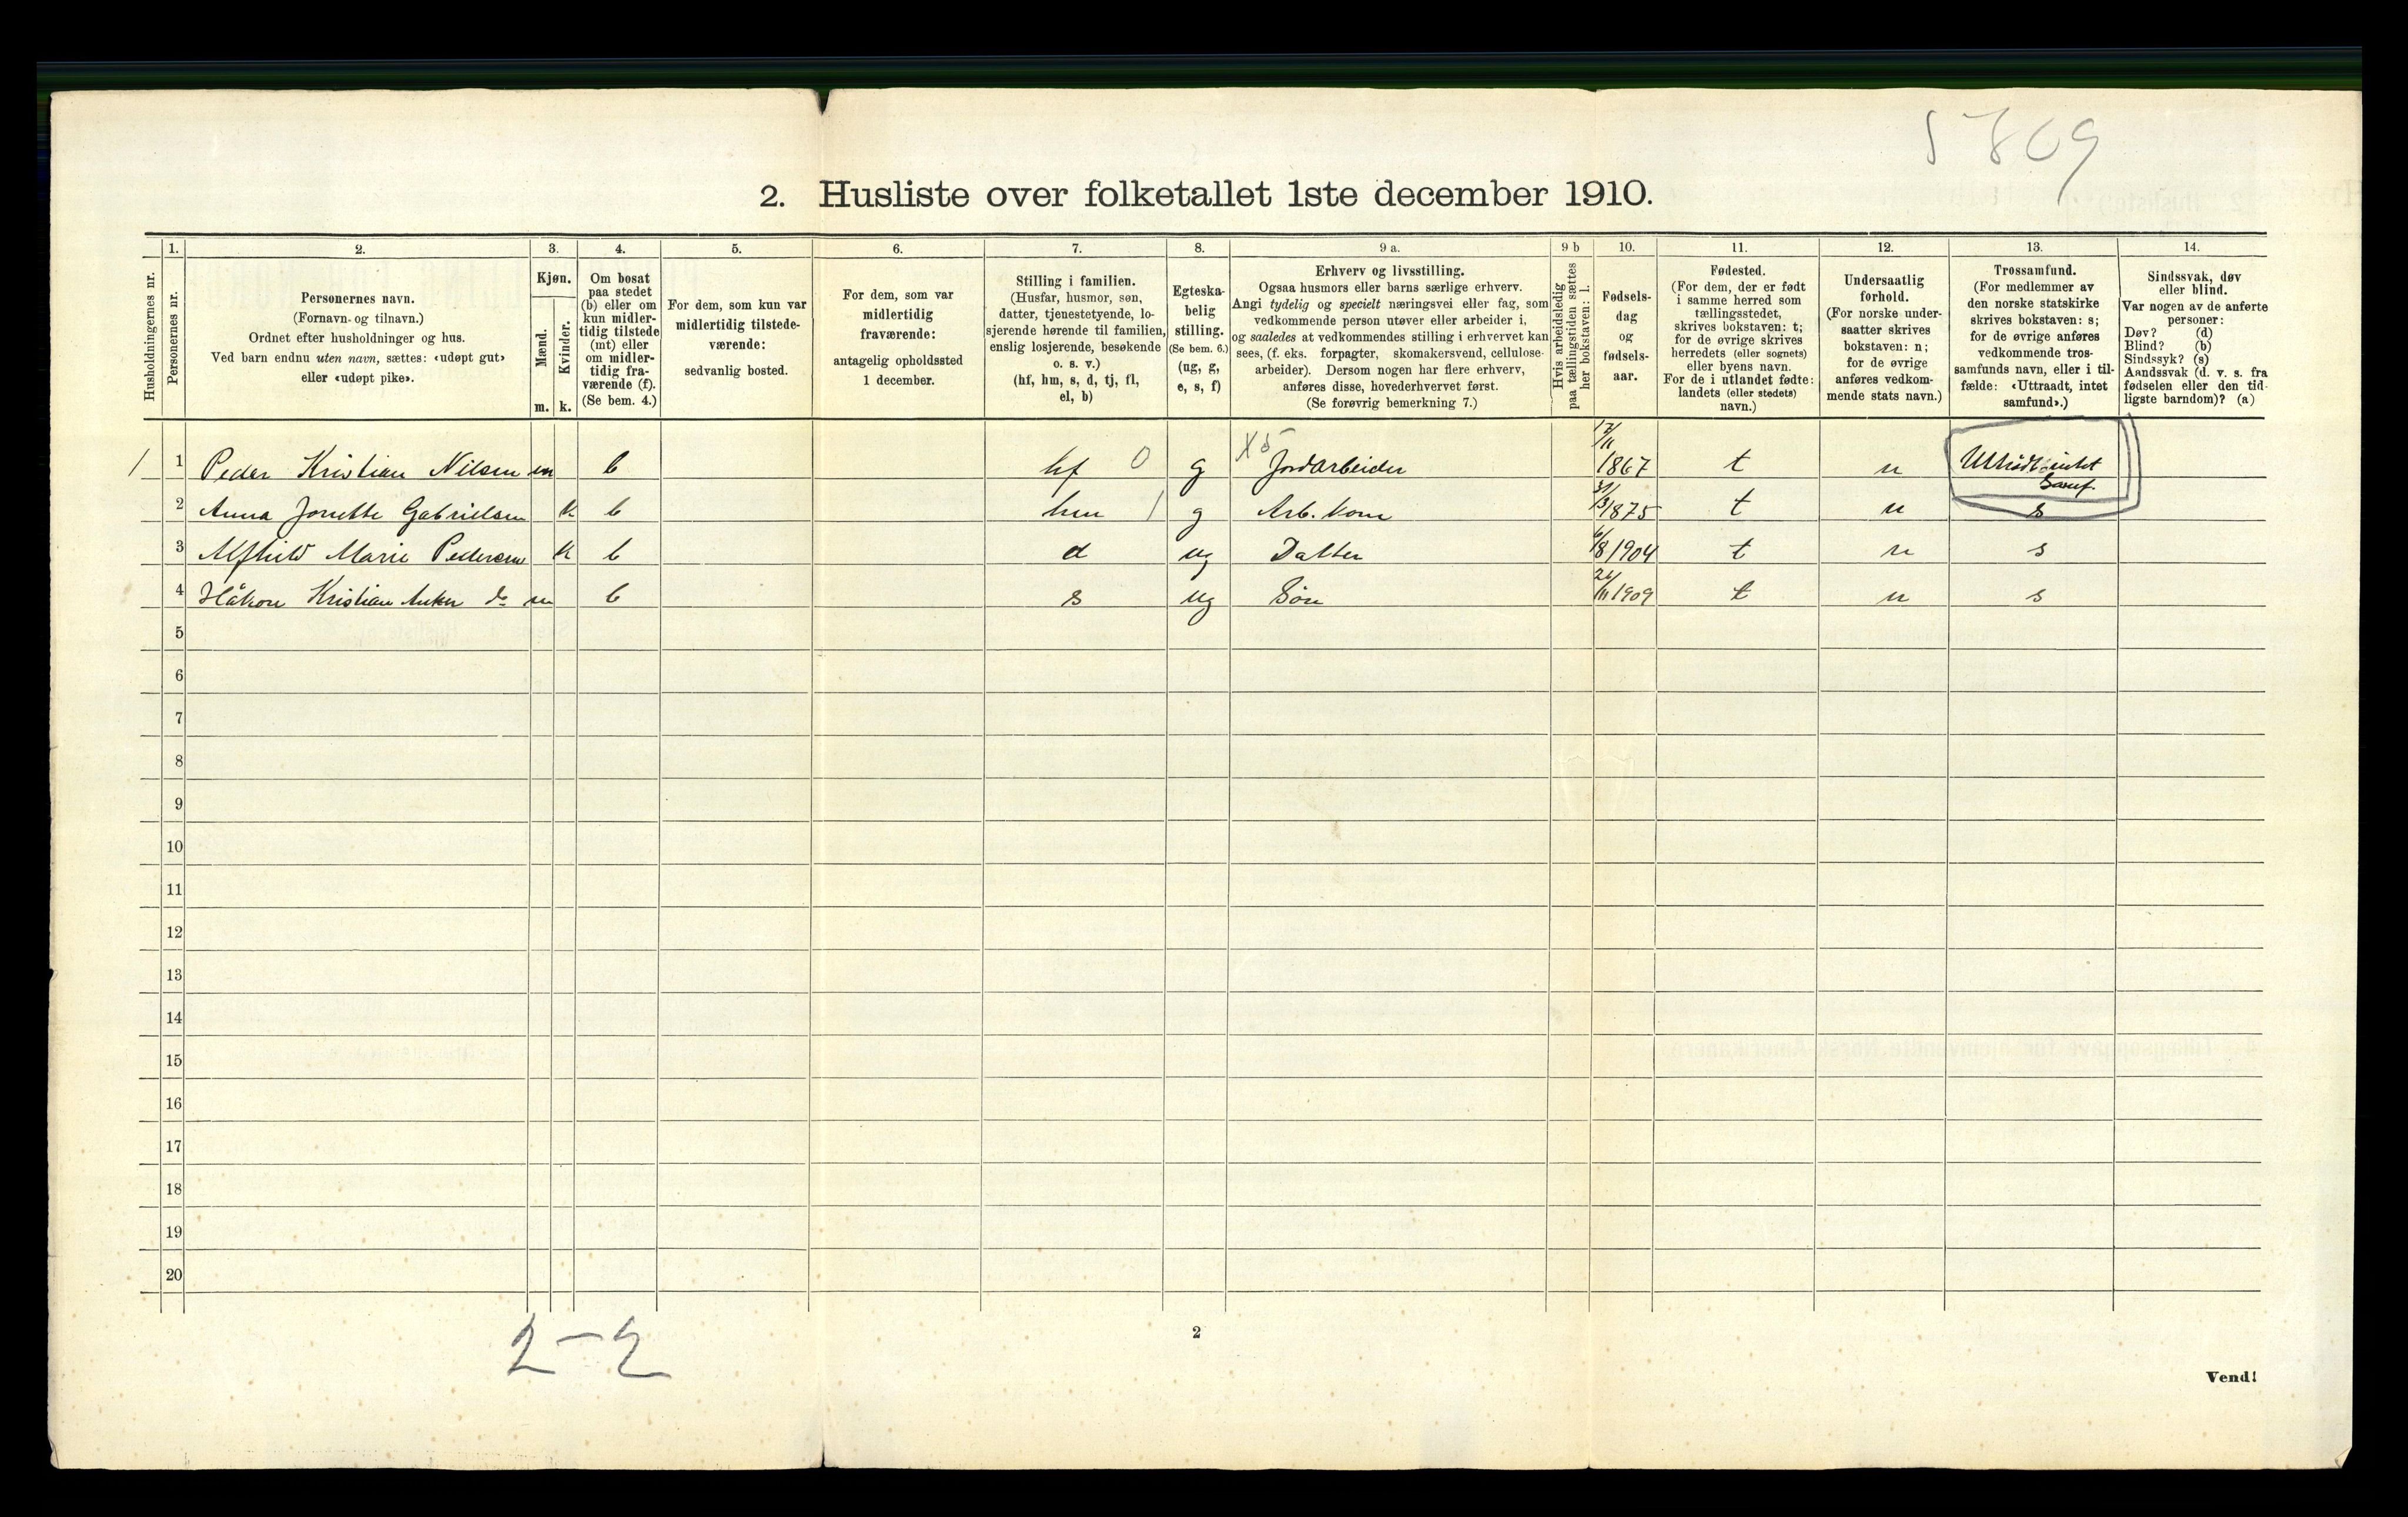 5809
2. Husliste over folketallet 1ste december 1910.
Husholdningernes nr.
1.
Personernes nr.
2.
Personernes navn.
(Fornavn og tilnavn.)
Ordnet efter husholdninger og hus.
Ved barn endnu uten navn, sættes: «udøpt gut»
eller «udøpt pike».
3.
Kjøn.
Mænd.
m.
Kvinder.
k.
4.
Om bosat
paa stedet
(b) eller om
kun midler-
tidig tilstede
(mt) eller
om midler-
tidig fra-
værende (f).
(Se bem. 4.)
5.
For dem, som kun var
midlertidig tilstede-
værende:
sedvanlig bosted.
6.
For dem, som var
midlertidig
fraværende:
antagelig opholdssted
1 december.
7.
Stilling i familien.
(Husfar, husmor, søn,
datter, tjenestetyende, lo-
sjerende hørende til familien,
enslig losjerende, besøkende
o. s. v.)
(hf, hm, s, d, tj, fl,
el, b)
8.
Egteska-
belig
stilling.
(Se bem. 6.)
(ug, g,
e, s, f)
9 a.
Erhverv og livsstilling.
Ogsaa husmors eller barns særlige erhverv.
Angi tydelig og specielt næringsvei eller fag, som
vedkommende person utøver eller arbeider i,
og saaledes at vedkommendes stilling i erhvervet kan
sees, (f. eks. forpagter, skomakersvend, cellulose-
arbeider). Dersom nogen har flere erhverv,
anføres disse, hovederhvervet først.
(Se forøvrig bemerkning 7.)
9 b
Hvis arbeidsledig
paa tællingstiden sættes
her bokstaven: l.
10.
Fødsels-
dag
og
fødsels-
aar.
11.
Fødested.
(For dem, der er født
i samme herred som
tællingsstedet,
skrives bokstaven: t;
for de øvrige skrives
herredets (eller sognets)
eller byens navn.
For de i utlandet fødte:
landets (eller stedets)
navn.)
12.
Undersaatlig
forhold.
(For norske under-
saatter skrives
bokstaven: n;
for de øvrige
anføres vedkom-
mende stats navn.)
13.
Trossamfund.
(For medlemmer av
den norske statskirke
skrives bokstaven: s;
for de øvrige anføres
vedkommende tros-
samfunds navn, eller i til-
fælde: «Uttraadt, intet
samfund».)
14.
Sindssvak, døv
eller blind.
Var nogen av de anførte
personer:
Døv? (d)
Blind? (b)
Sindssyk? (s)
Aandssvak (d. v. s. fra
fødselen eller den tid-
ligste barndom)? (a)
1 1 Peder Kristian Nilsen m b hf 0 g X5 Jordarbeider 1867 t n intet
Samf.
2 Anna Jonette Gabrielsen k b hm 1 g Arb. kone 31/3 1875 t n s
3 Alfhild Marie Pedersen k b d ug Datter 6/8 1904 t n s
4 Håkon Kristian Anker do m b s ug Søn 26/11 1909 t n s
5
6
7
8
9
10
11
12
13
14
15
16
17
18
19
20
2-2
2
Vend!